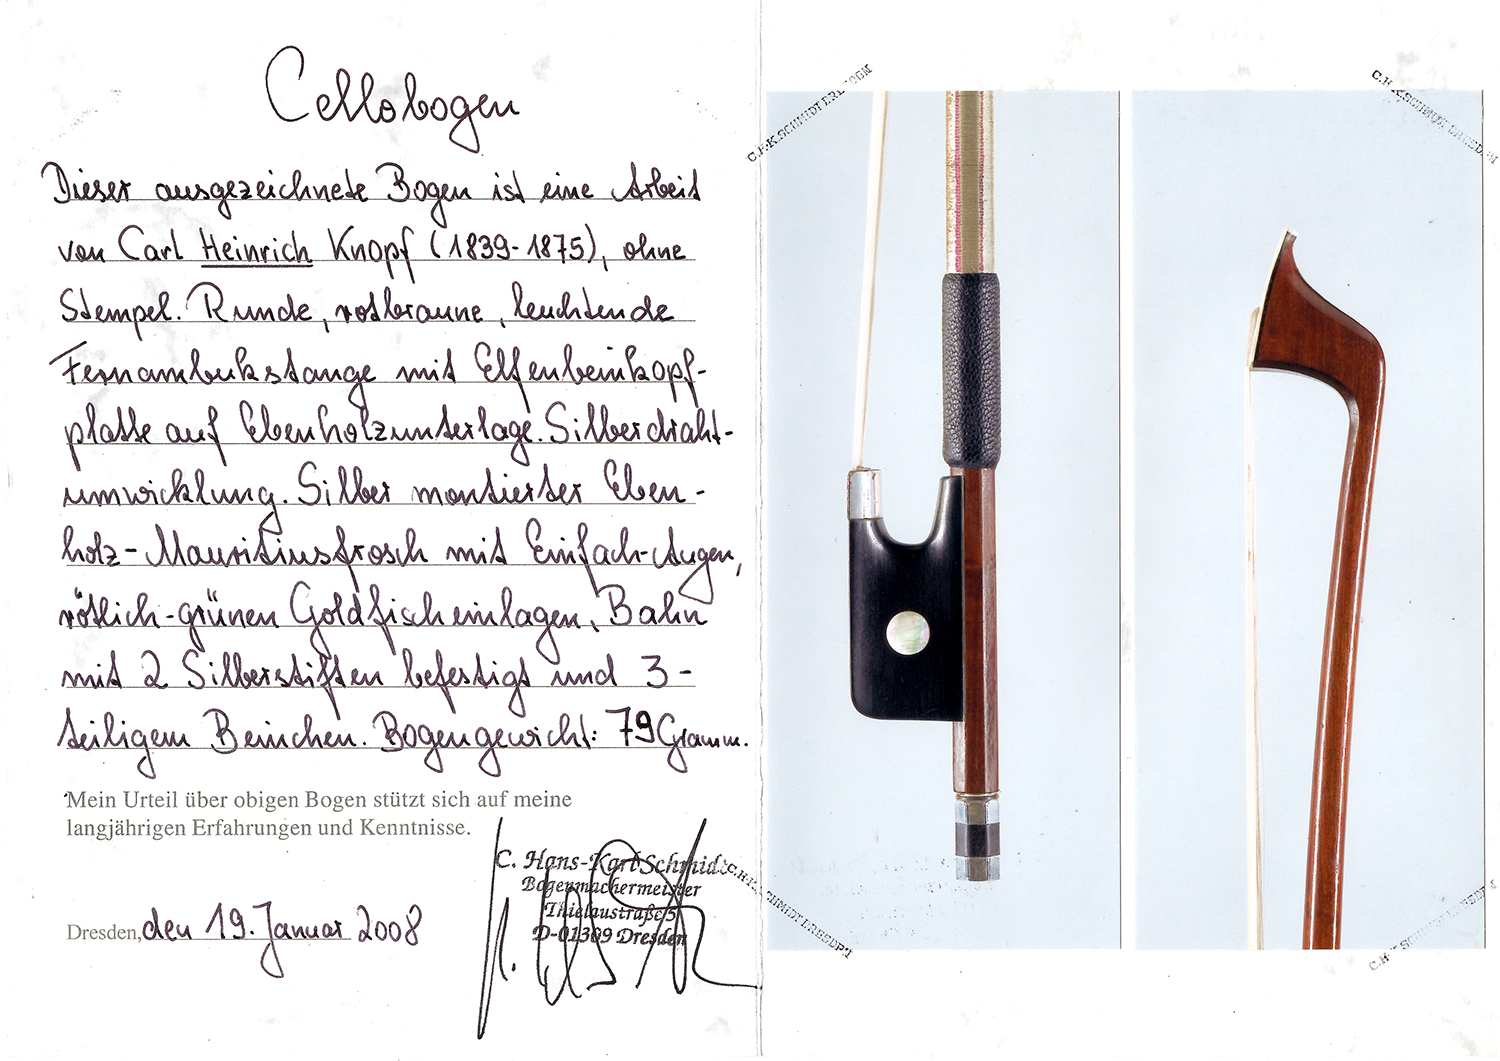 Cellobogen
Dieser ausgezeichnete Bogen ist eine Arbeit
von Carl Heinrich Knopf (1839-1875), ohne
Stempel. Runde, rotbraune, leuchtende
Fernambukstange mit Elfenbeinkopf-
platte auf Ebenholzunterlage. Silberdraht-
umwicklung. Silber montierter Eben-
holz-Mauritiusfrosch mit Einfach-Augen,
rötlich-grünen Goldfischeinlagen, Bahn
mit 2 Silberstiften befestigt und 3-
teiligem Beinchen. Bogengewicht: 79 Gramm.
Mein Urteil über obigen Bogen stützt sich auf meine
langjährigen Erfahrungen und Kenntnisse.
C. Hans-Karl Schmidt
Bogenmachermeister
Thielaustraße 5
D-01309 Dresden
Dresden, den 19. Januar 2008
C.H.-K.SCHMIDT DRESDEN
C.H.-K.SCHMIDT DRESDEN
C.H.-K.SCHMIDT DRESDEN
C.H.-K.SCHMIDT DRESDEN